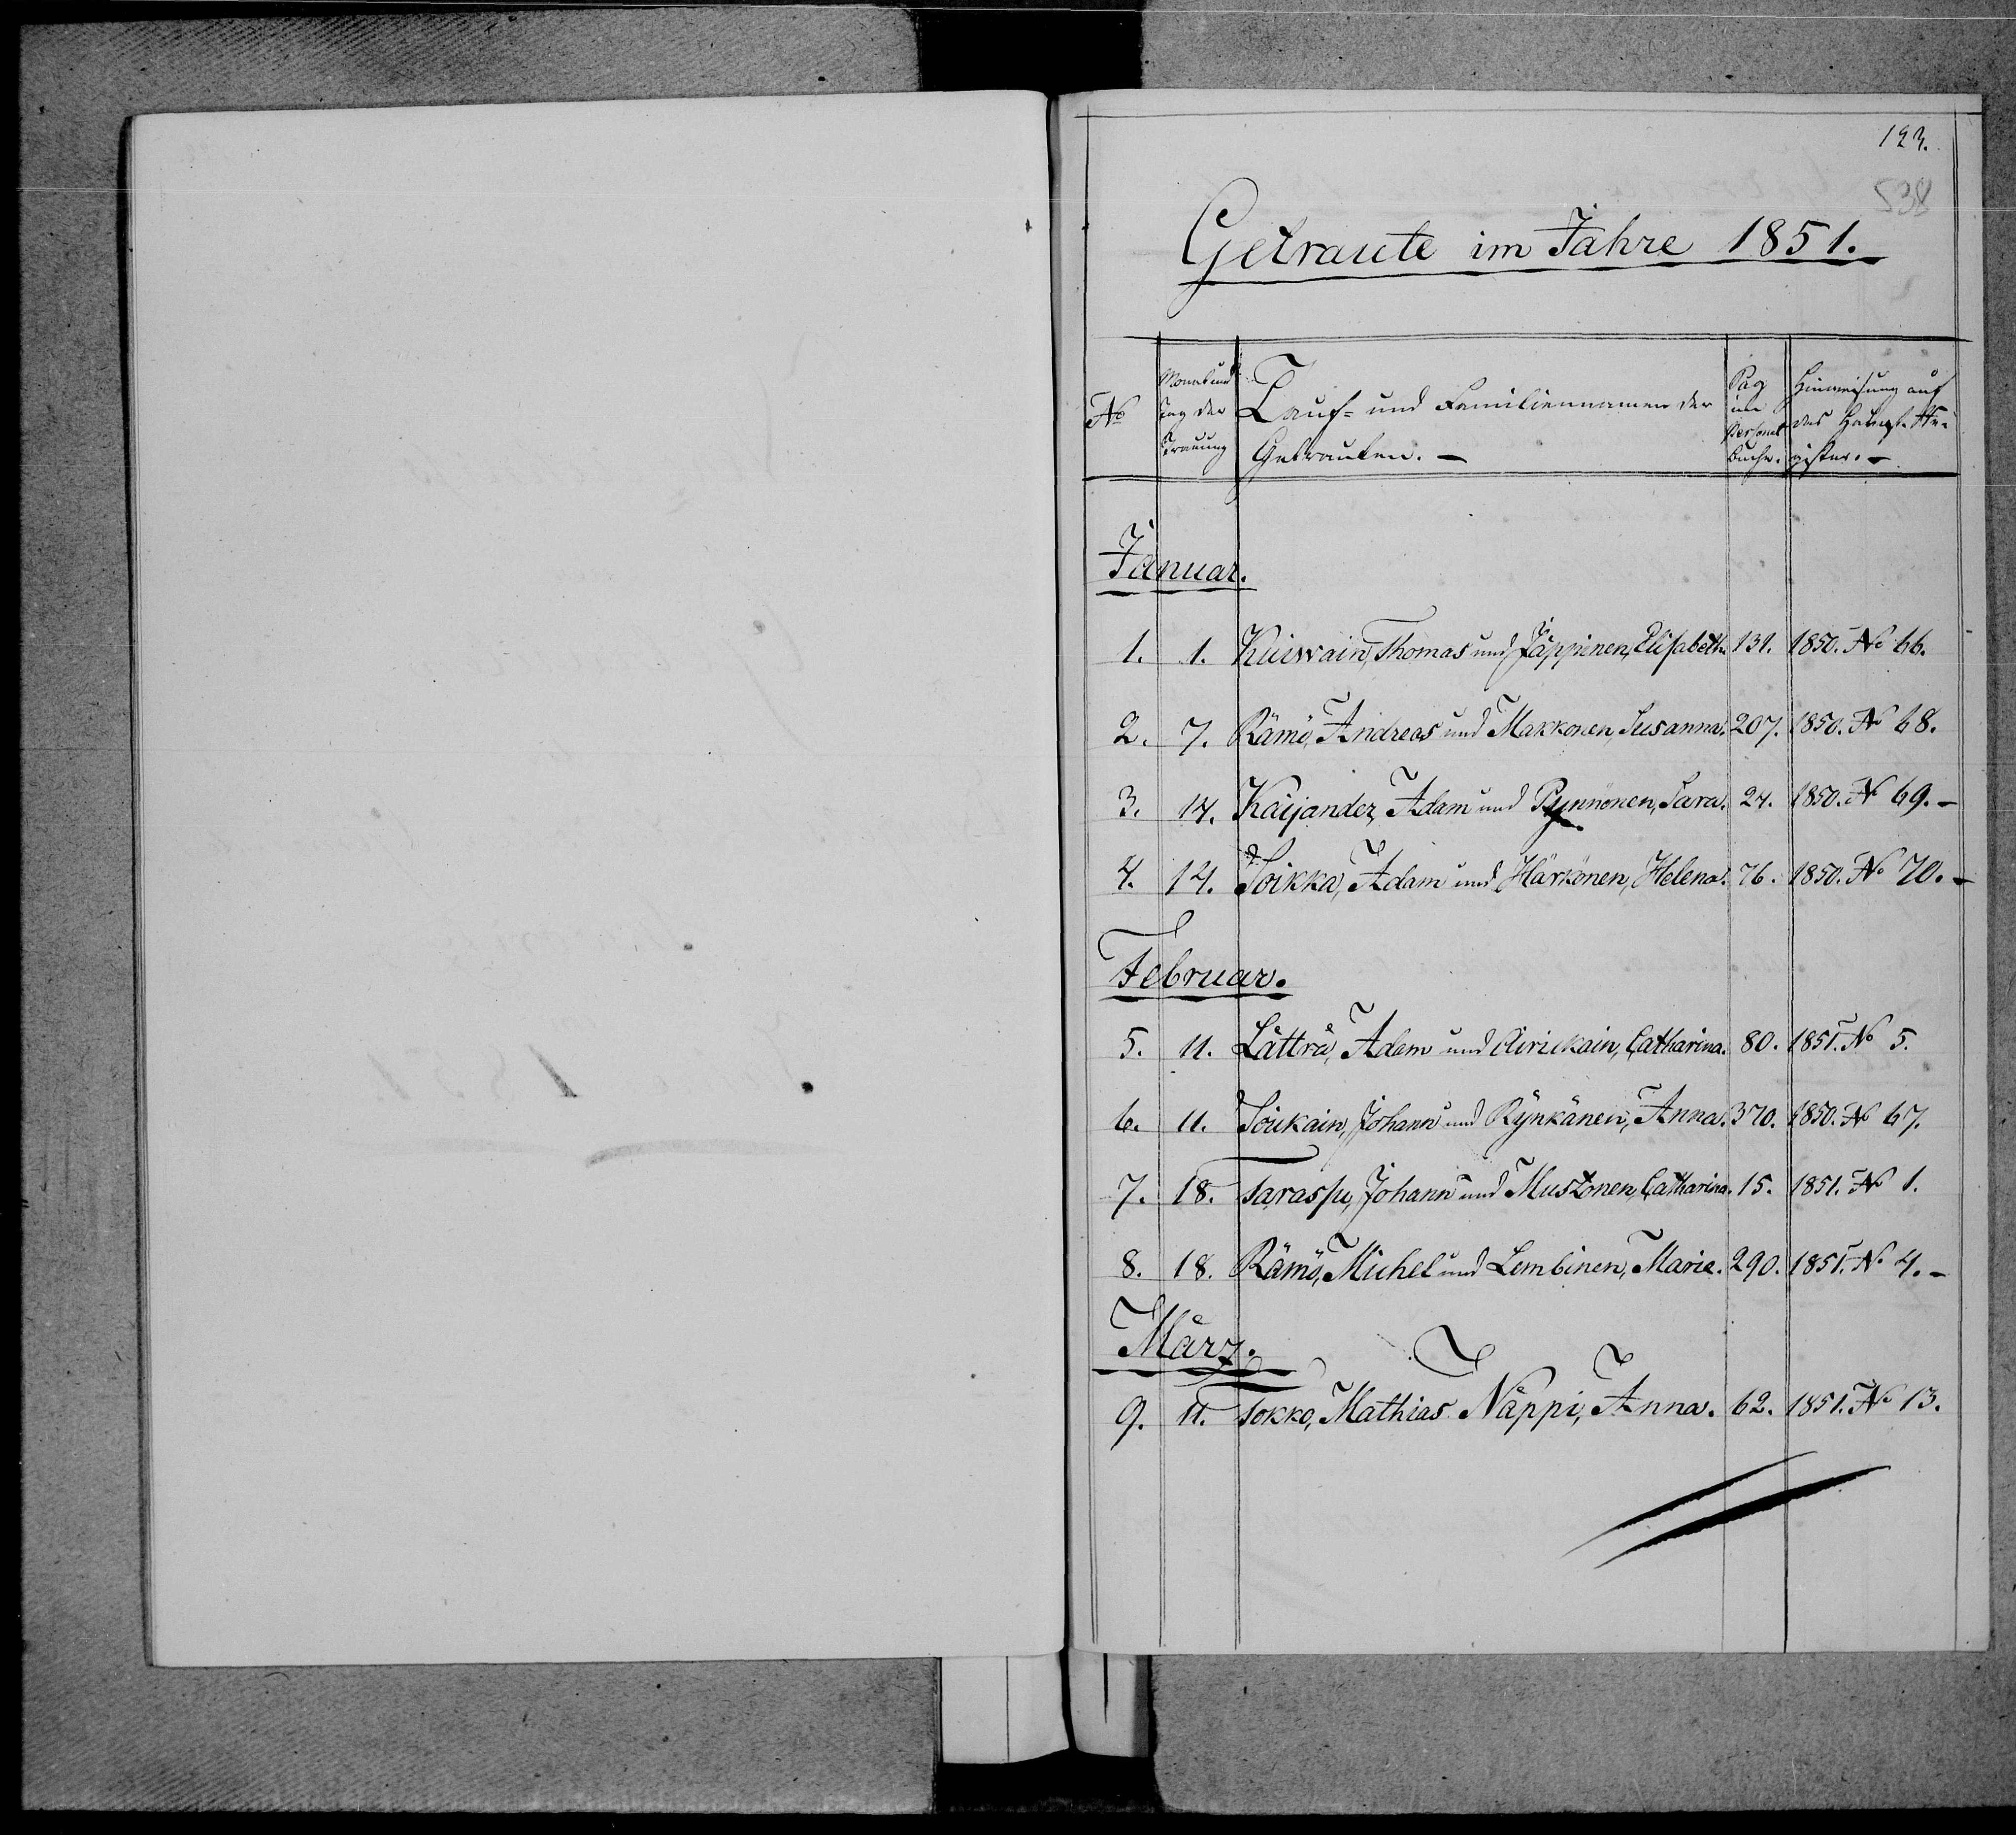 123.
538
Getraute im Jahre 1851.
No
Monat und
Tag der
Trauung
Tauf- und Familiennamen der
Getrauten. —
Pag
im
Personal
Buche.
Hinweisung auf
das Haupt-Re-
gister. —
Januar.
1. 1. Kuiwain, Thomas und Jäppinen, Elisabeth. 131. 1850. No 66.
2. 7. Rämö, Andreas und Makkonen, Susanna. 207. 1850. No 68.
3. 14. Kaijander, Adam und Pynnönen, Sara. 24. 1850. No 69. —
4. 14. Soikka, Adam und Härkönen, Helena. 76. 1850. No 70. —
Februar.
5. 11. Lätträ, Adam und Airikain, Catharina. 80. 1851. No 5.
6. 11. Soukain, Johann und Rynkänen, Anna. 370. 1850. No 67.
7. 18. Taraspu, Johann und Mustonen, Catharina. 15. 1851. No 1.
8. 18. Rämö, Michel und Lembinen, Marie. 290. 1851. No 4. —
März.
9. 11. Tokko, Mathias. Näppi, Anna. 62. 1851. No 13.